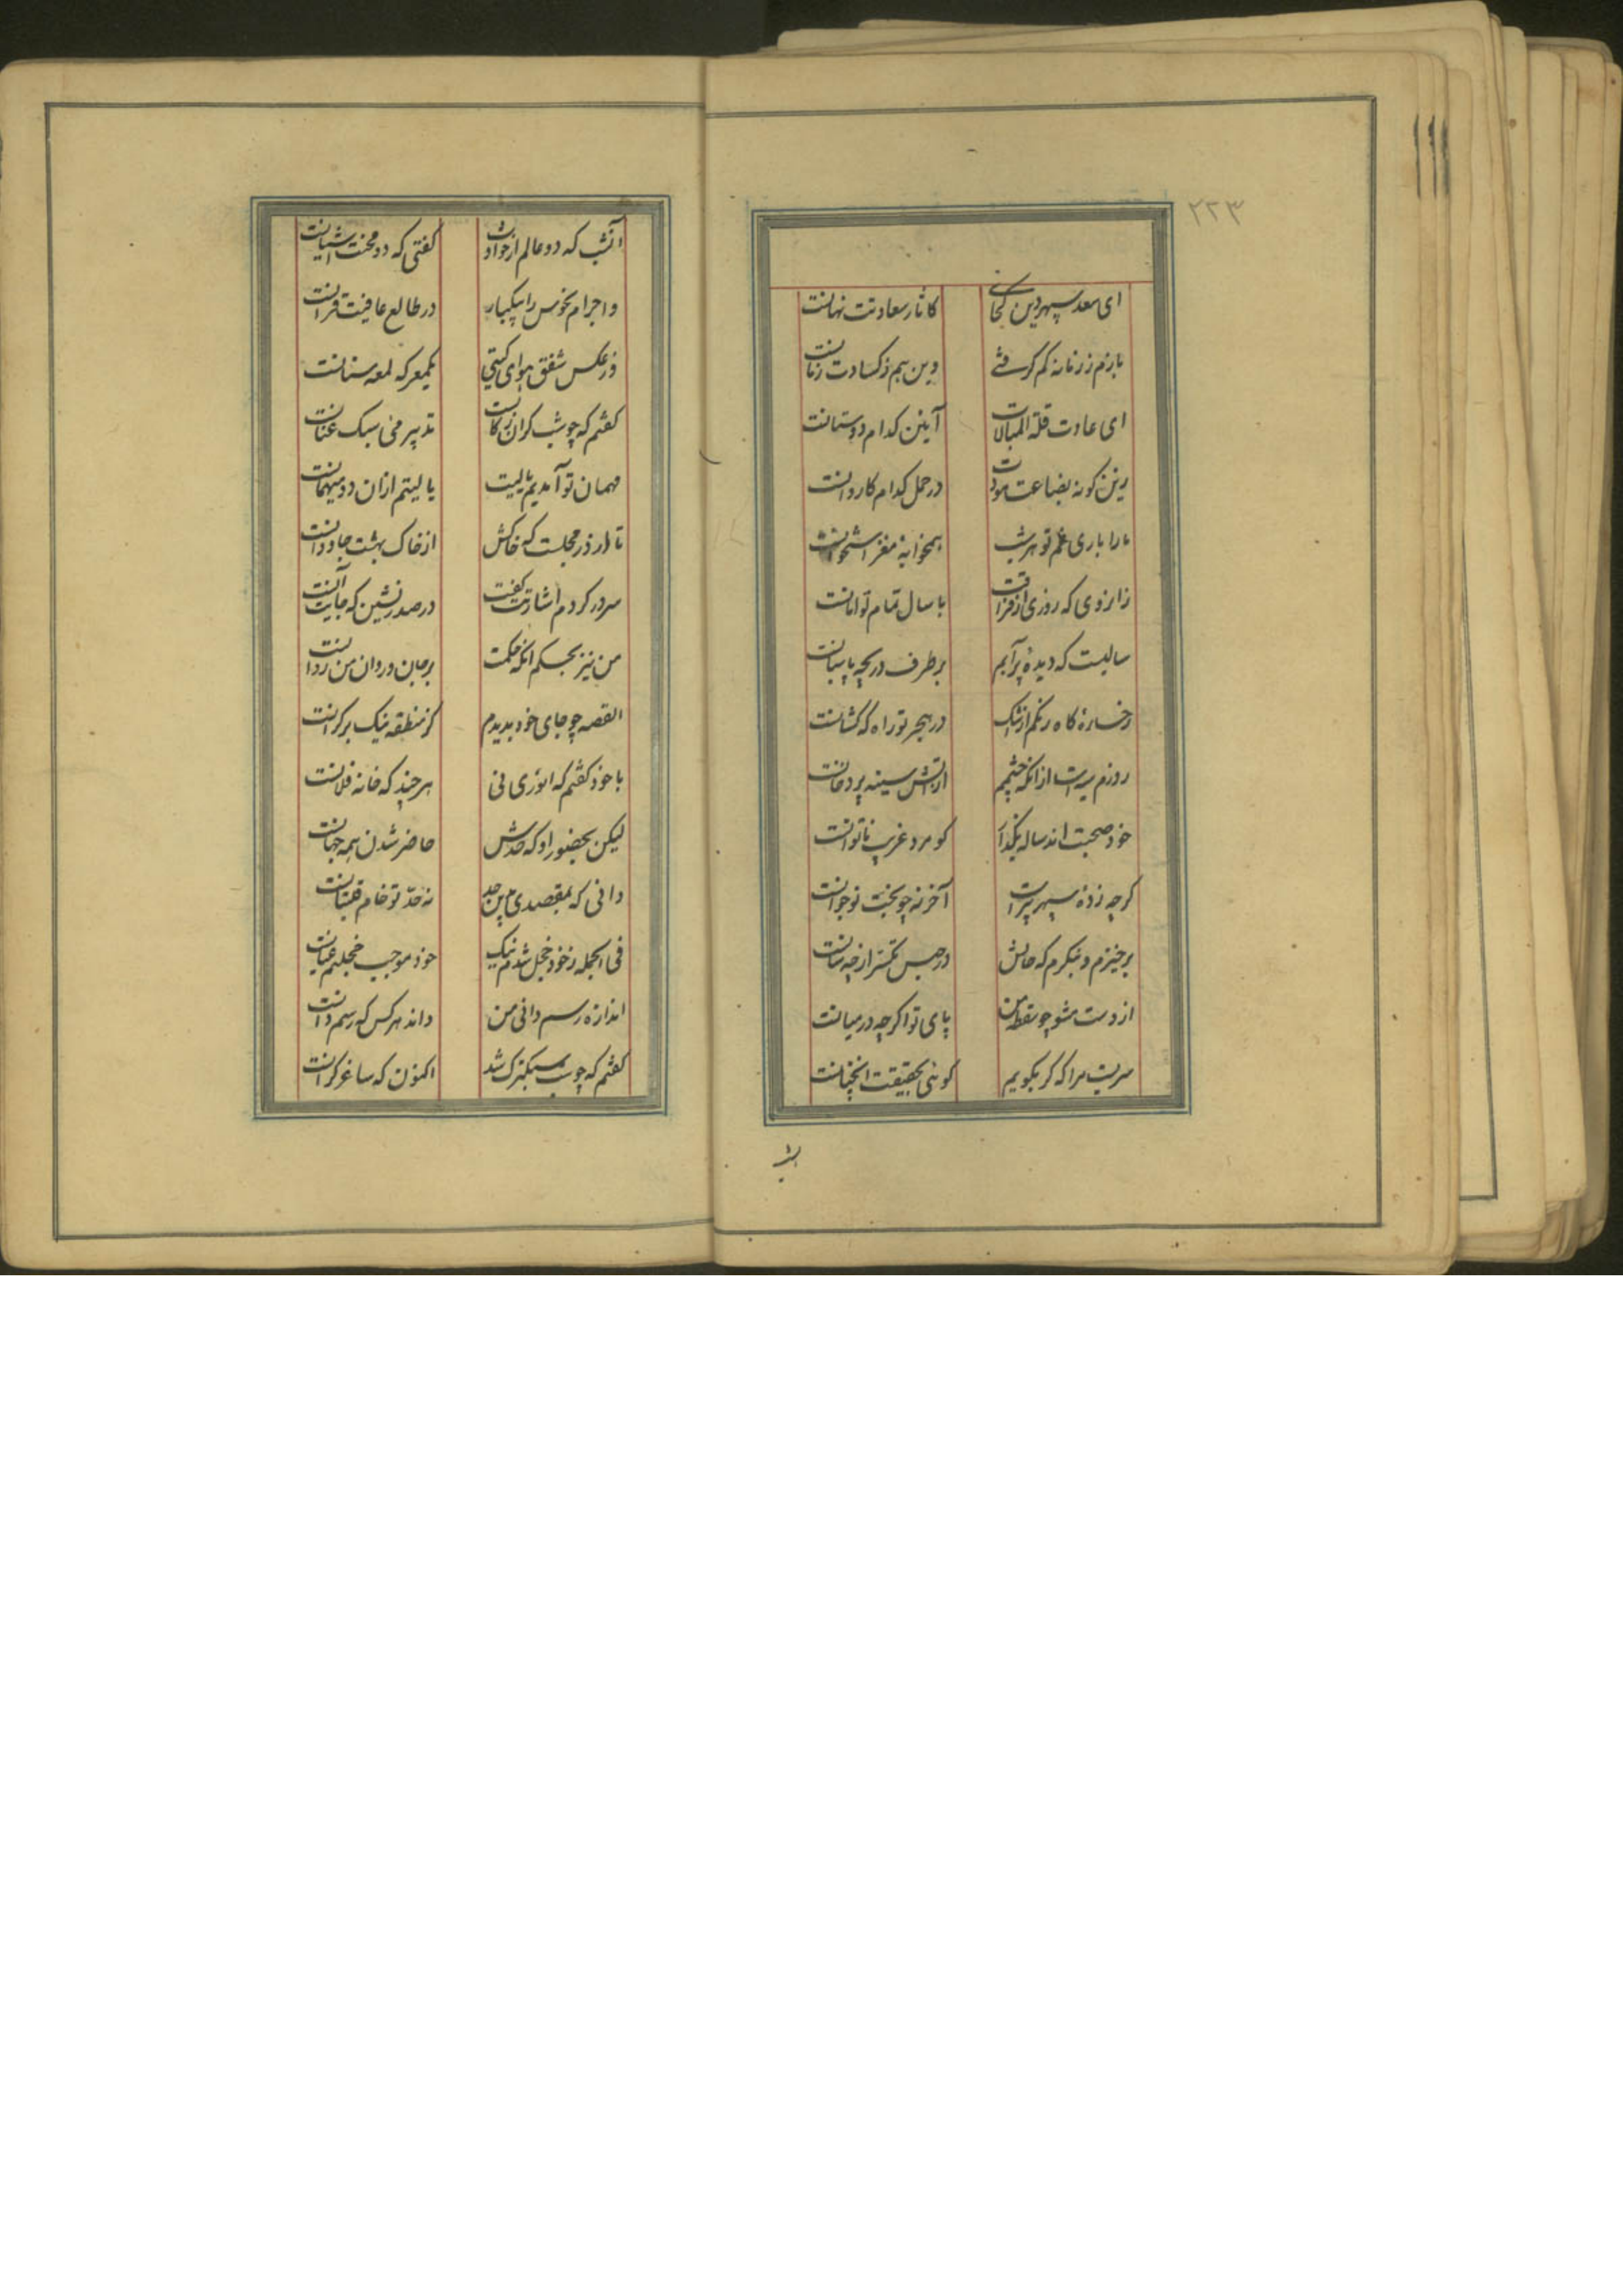 ۲۲۳
ای سعد سپهر دین کجائی کاثار سعادتت نهانست
بازم ز زمانه کم گرفتی وین هم ز کسادت زمانست
ای عادت قلة المبالات آیین کدام دوستانست
زین گونه بضاعت مودت در حمل کدام کاروانست
ما را باری غم تو هر شب همخوابهٔ مغز استخوانست
زارزوی که روزی از فراقت با سال تمام توامانست
سالیست که دیدهٔ پر آبم بر طرف دریچه پاسبانست
رخسارهٔ کاه رنگم از اشک در هجر تو راه کهکشانست
روزم سیه است از آنکه چشمم از آتش سینه پر دخانست
خود صحبت اند ساله بگذار کو مرد غریب ناتوانست
گرچه زدهٔ سپهر پیر است آخر نه چو بخت نوجوانست
برخیزم و بنگرم که حالش در حبس تکسر از چه سانست
از دست مشو چو سقطهٔ من پای تو اگرچه در میانست
سریست مرا که گر بگویم گوئی بحقیقت آنچنانست
بش
آنشب که دو عالم از حوادث گفتی که دو محنت آشیانست
و اجرام نحوس را بیکبار در طالع عافیت قرانست
وز عکس شفق هوای گیتی یکمعرکه لمعه سنانست
گفتم که چو شب گران رکابست تدبیر می سبک عنانست
مهمان تو آمدیم یا لیت یا لیتم از آن دو میهمانست
تا در ز در مجلست که خاکش از خاک بهشت جاودانست
سر در کردم اشارتت گفت در صدر نشین که جایت آنست
من نیز بحکم آنکه حکمت بر جان و روان من روانست
القصه چو جای خود بدیدم کز منطقه نیک بر کرانست
با خود گفتم که انوری نی هرچند که خانه فلانست
لیکن بحضور او که حدش حاضر شدن همه جهانست
دانی که بمقصدی بدین حد نه حد تو خام قلتبانست
فی الجمله ز خود خجل شدم نیک خود موجب خجلتم عیانست
اندازه رسم دانی من داند هر کس که رسم دانست
گفتم که چو شب سبکترک شد اکنون که ساغر گرانست